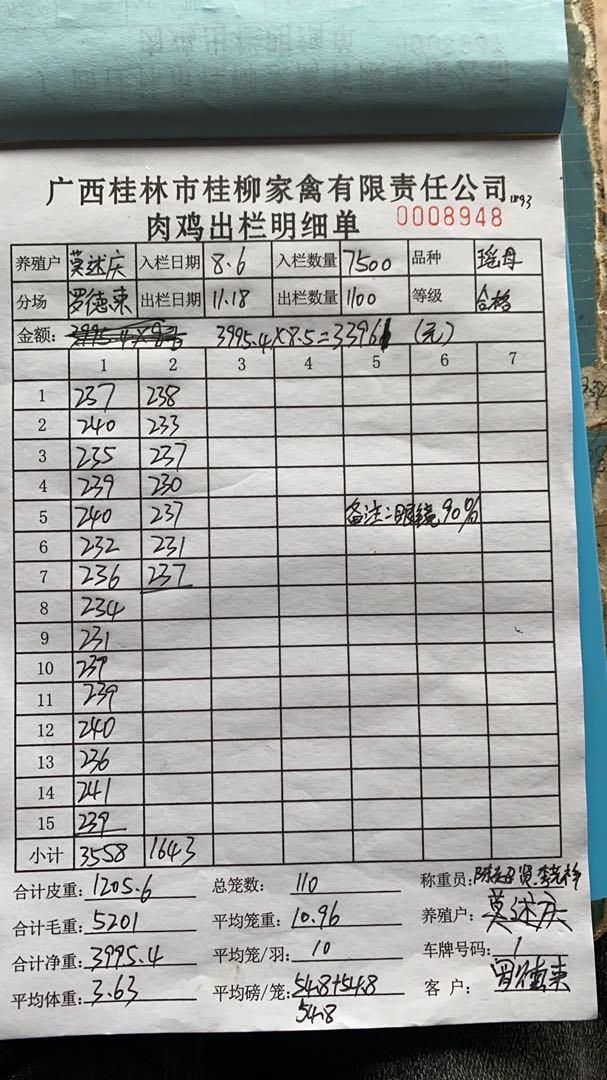 广西桂林市桂柳家禽有限责任公司 1893
肉鸡出栏明细单 0008948
养殖户 莫述庆 入栏日期 8.6 入栏数量 7500 品种 瑶母
分场 罗德束 出栏日期 11.18 出栏数量 1100 等级 合格
金额: 3995.4×8.5=33961 (元)
1 2 3 4 5 6 7
1 237 238
2 240 233
3 235 237
4 239 230
5 240 237 备注:眼镜90%
6 232 231
7 236 237
8 234
9 231
10 239
11 239
12 240
13 236
14 241
15 239
小计 3558 1643
合计皮重: 1205.6 总笼数: 110 称重员:
合计毛重: 5201 平均笼重: 10.96 养殖户: 莫述庆
合计净重: 3995.4 平均笼/羽: 10 车牌号码: 1
平均体重: 3.63 平均磅/笼: 54.8+54.8 客户:
54.8